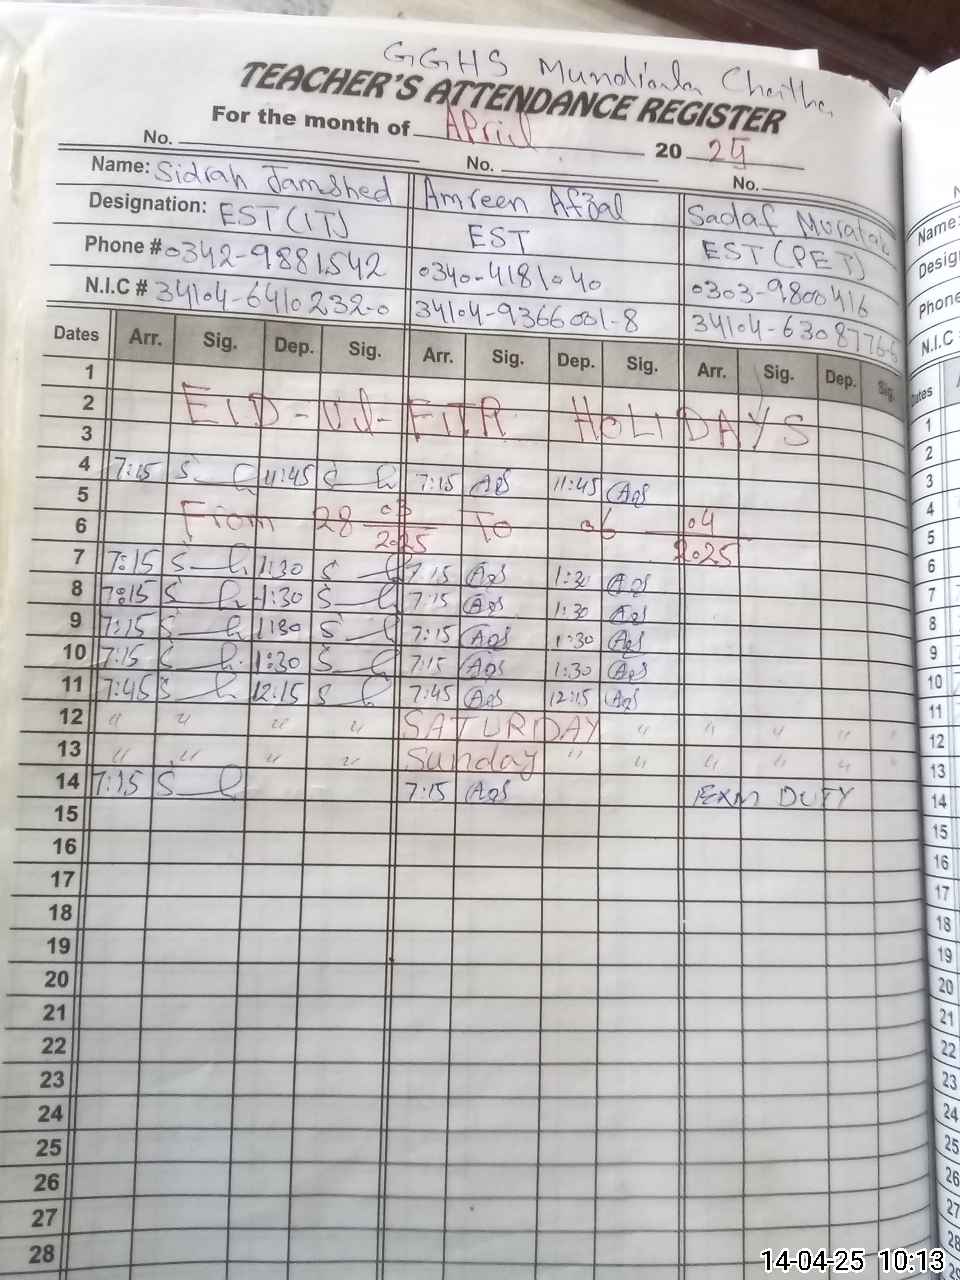 GGHS Mundianla Chattha
TEACHER'S ATTENDANCE REGISTER
For the month of April 2025
No. No. No.
Name: Sidrah Jamshed Amreen Afzal Sadaf
Designation: EST(IT) EST EST(PET)
Phone # 0342-9881542 0340-4181040 0303-9800416
N.I.C # 34104-6410232-0 34104-9366001-8 34104-6308776-6
Dates Arr. Sig. Dep. Sig. Arr. Sig. Dep. Sig. Arr. Sig. Dep. Sig.
1
2 EID-UL-FITR HOLIDAYS
3
4 7:15 11:45 7:15 11:45
5
6 From 28 03 2025 To 06 04 2025
7 7:15 1:30 7:15 1:30
8 7:15 1:30 7:15 1:30
9 7:15 1:30 7:15 1:30
10 7:15 1:30 7:15 1:30
11 7:45 12:15 7:45 12:15
12 " " " " SATURDAY " " " " "
13 " " " " Sunday " " " " " "
14 7:15 7:15 EXM DUTY
15
16
17
18
19
20
21
22
23
24
25
26
27
28
Name:
Phone
N.I.C
1
2
3
4
5
6
7
8
9
10
11
12
13
14
15
16
17
18
19
20
21
22
23
24
25
26
27
28
14-04-25 10:13